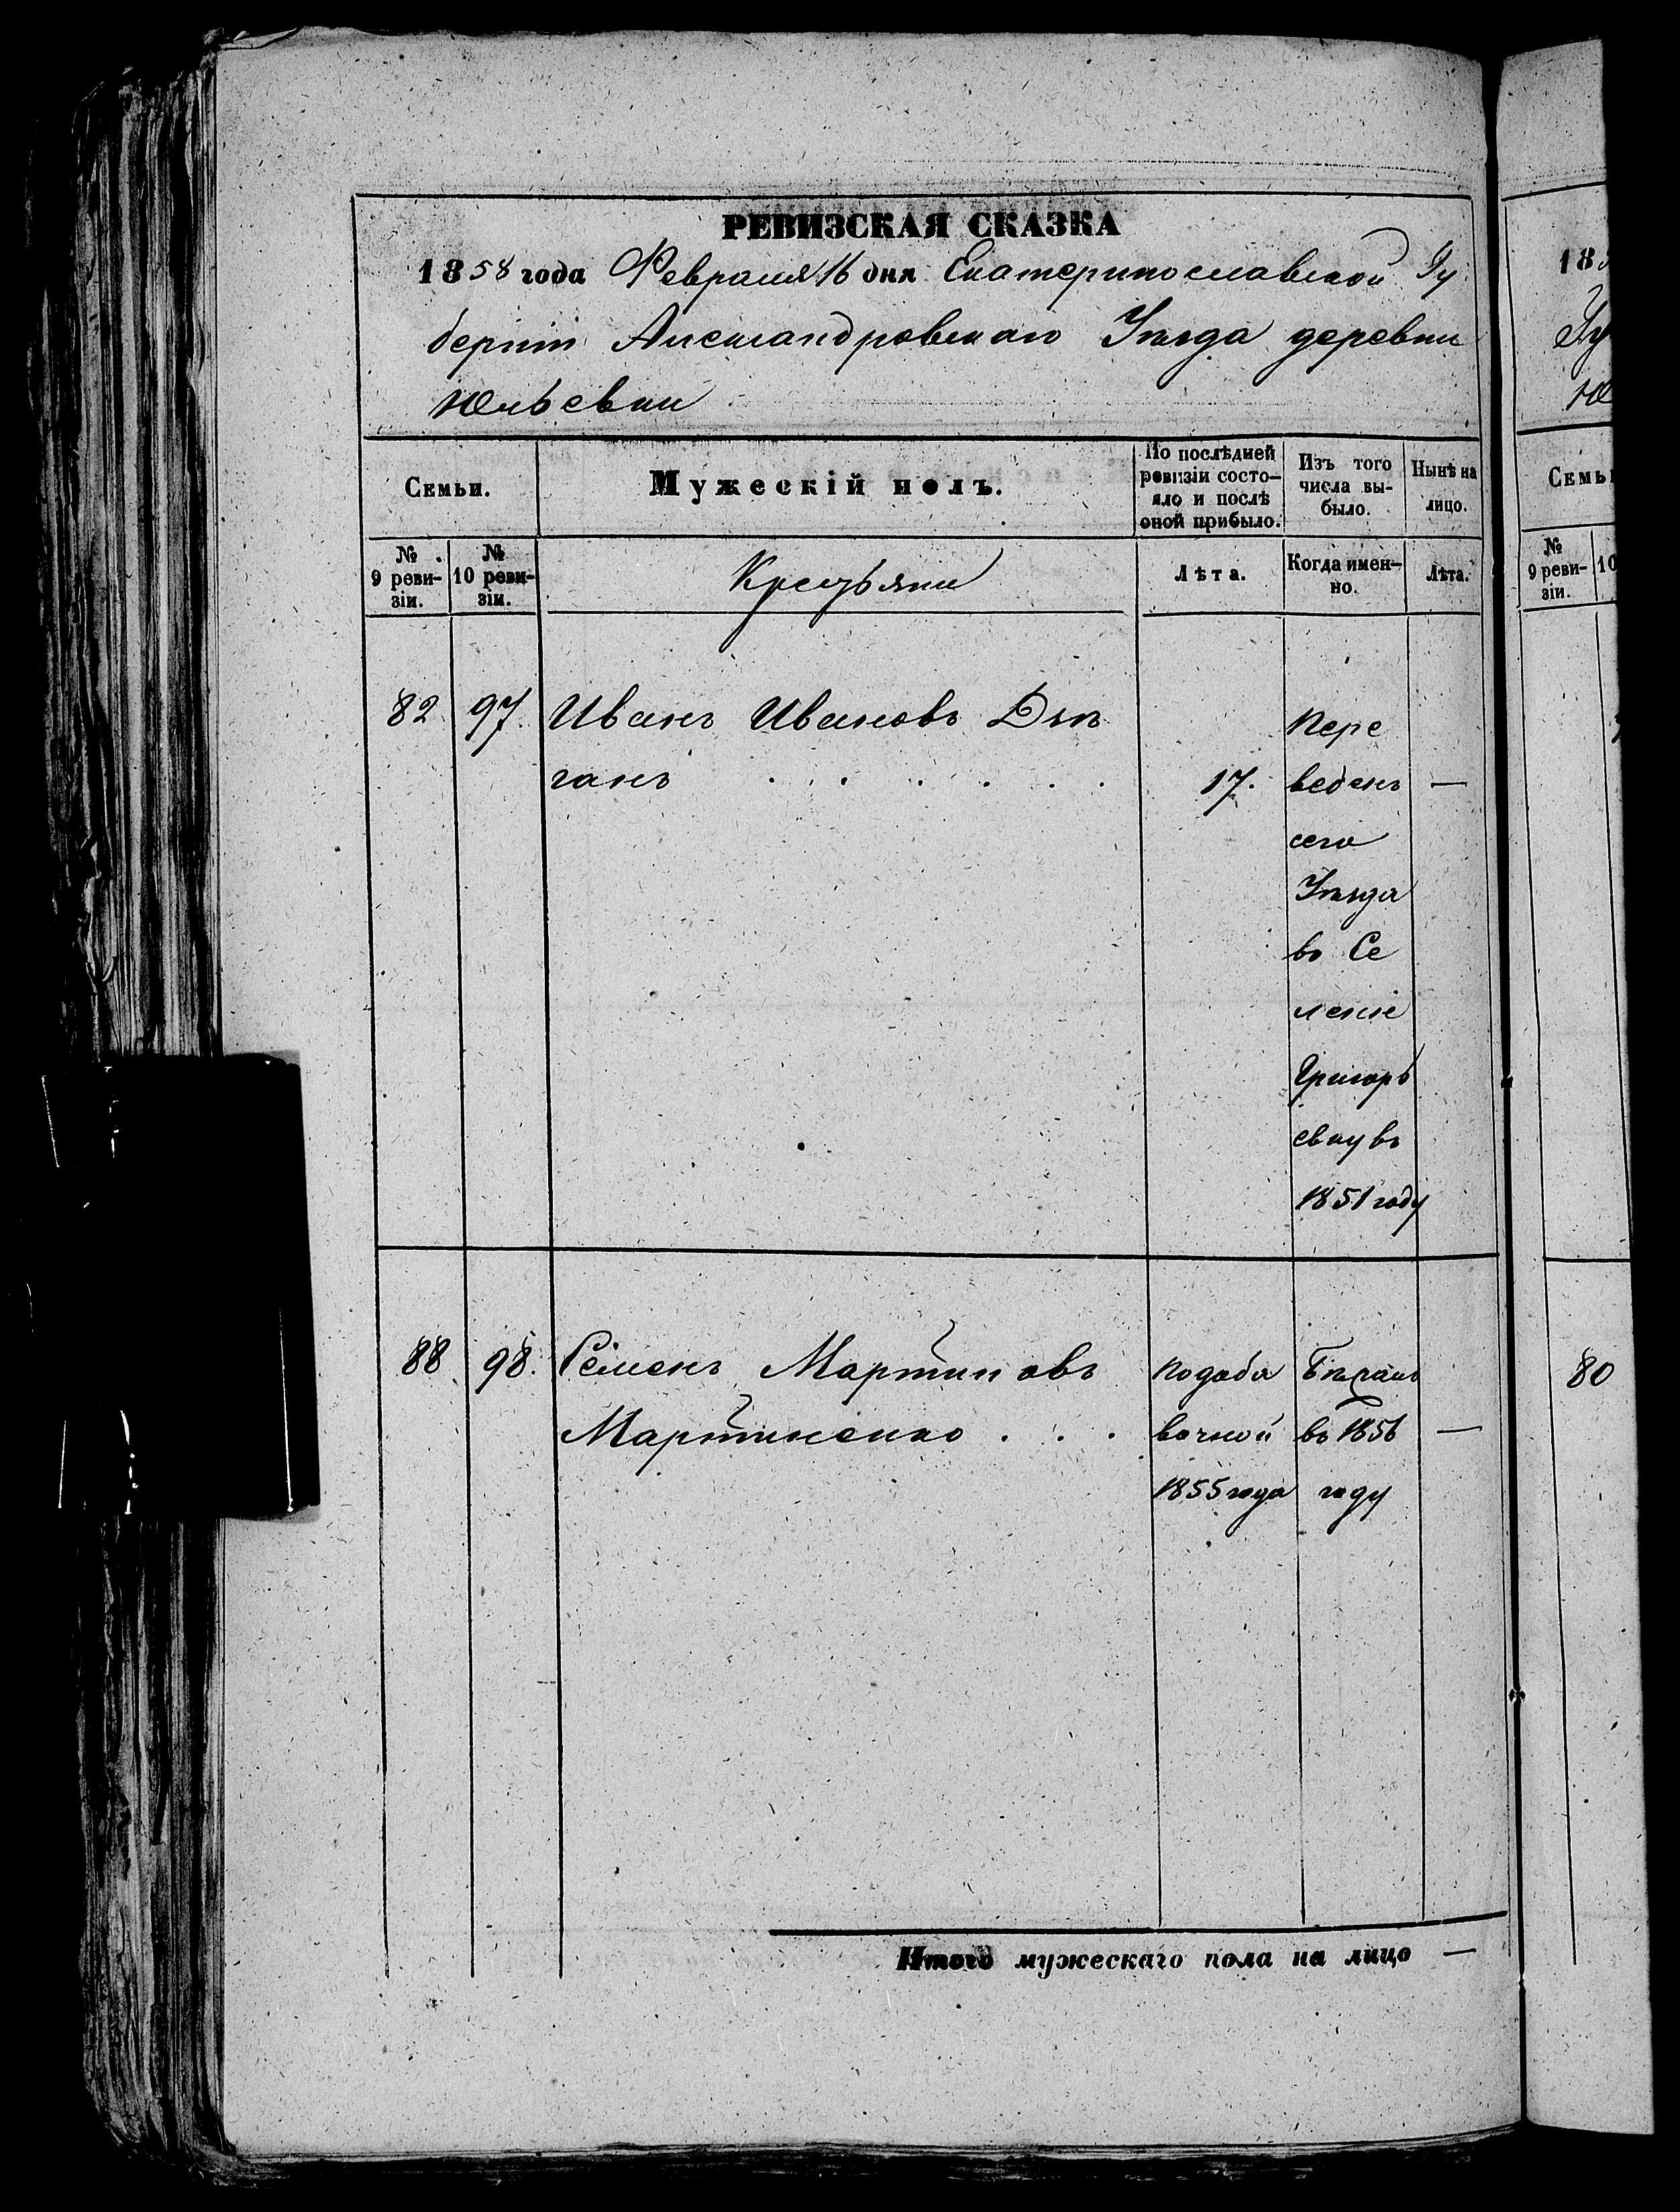 РЕВИЗСКАЯ СКАЗКА
1858 года Февраля 16 дня Екатеринославской Гу
берніи Александровскаго Уѣзда деревни
Юльевки
Семьи.
Мужескій полъ.
По послѣдней ревизіи состо-
яло и послѣ
оной прибыло.
Изъ того
числа вы-
было.
Нынѣ на
лицо.
№
9 реви-
зіи.
№
10 реви-
зіи.
Крестьяни
Лѣта.
Когда имен-
но.
Лѣта.
82 97. Иванъ Ивановъ
ганъ . . . . . . 17. —
Пере
веденъ
сего
Уѣзда
въ Се
леніе
Григорь
евку въ
1851 году
88 98. Семенъ Мартиновъ
Мартиненко . . . —
по доба
вочной
1855 года
въ 1856
году
Итого мужескаго пола на лицо —
18
Гу
Ю
Семьи
№
9 реви-
зіи.
10
80